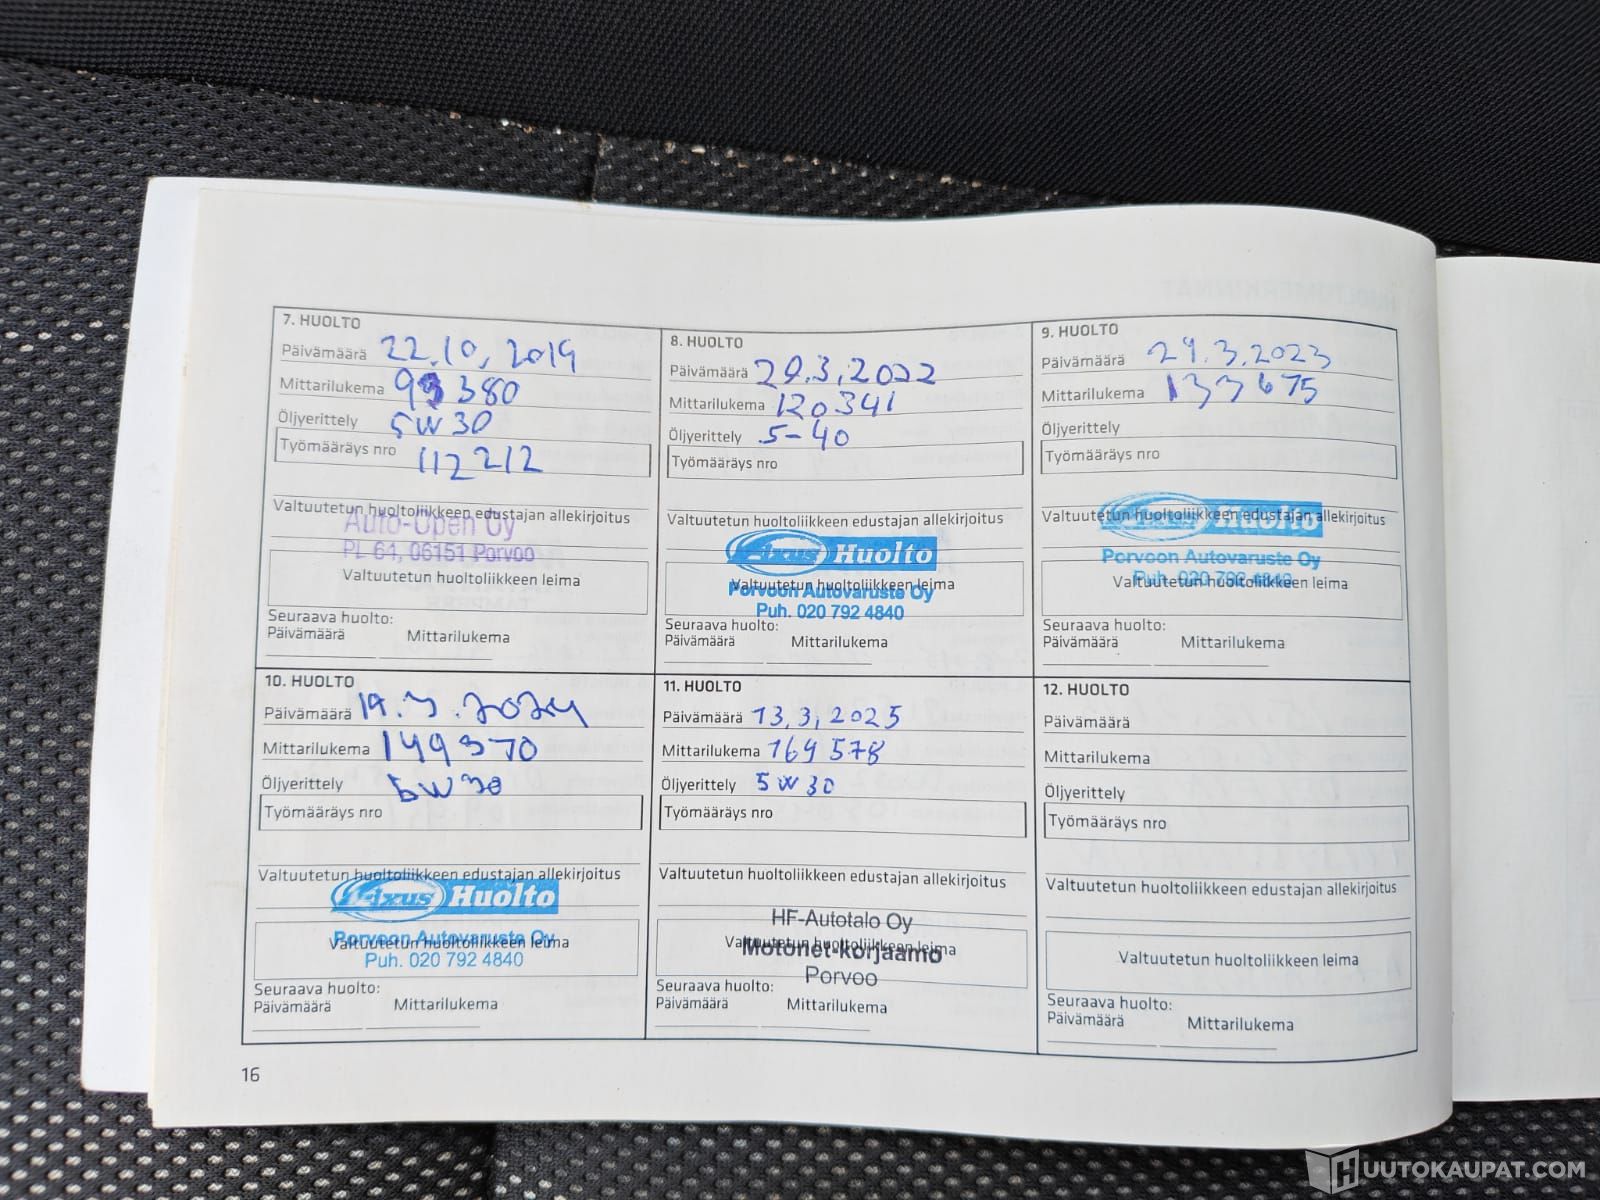 7. HUOLTO
Päivämäärä 22.10.2019
Mittarilukema 380
Öljyerittely 5W30
Työmääräys nro 112212
Valtuutetun huoltoliikkeen edustajan allekirjoitus
Auto-Open Oy
PL 64, 06151 Porvoo
Valtuutetun huoltoliikkeen leima
Seuraava huolto:
Päivämäärä Mittarilukema
8. HUOLTO
Päivämäärä 29.3.2022
Mittarilukema 120341
Öljyerittely 5-40
Työmääräys nro
Valtuutetun huoltoliikkeen edustajan allekirjoitus
Fixus Huolto
Valtuutetun huoltoliikkeen leima
Porvoon Autovaruste Oy
Puh. 020 792 4840
Seuraava huolto:
Päivämäärä Mittarilukema
9. HUOLTO
Päivämäärä 29.3.2023
Mittarilukema 133675
Öljyerittely
Työmääräys nro
Valtuutetun huoltoliikkeen edustajan allekirjoitus
Fixus Huolto
Porvoon Autovaruste Oy
Puh. 020 792 4840
Valtuutetun huoltoliikkeen leima
Seuraava huolto:
Päivämäärä Mittarilukema
10. HUOLTO
Päivämäärä 19.3.2024
Mittarilukema 149370
Öljyerittely 5W30
Työmääräys nro
Valtuutetun huoltoliikkeen edustajan allekirjoitus
Fixus Huolto
Porvoon Autovaruste Oy
Valtuutetun huoltoliikkeen leima
Puh. 020 792 4840
Seuraava huolto:
Päivämäärä Mittarilukema
11. HUOLTO
Päivämäärä 13.3.2025
Mittarilukema 169578
Öljyerittely 5W30
Työmääräys nro
Valtuutetun huoltoliikkeen edustajan allekirjoitus
HF-Autotalo Oy
Valtuutetun huoltoliikkeen leima
Motonet-korjaamo
Porvoo
Seuraava huolto:
Päivämäärä Mittarilukema
12. HUOLTO
Päivämäärä
Mittarilukema
Öljyerittely
Työmääräys nro
Valtuutetun huoltoliikkeen edustajan allekirjoitus
Valtuutetun huoltoliikkeen leima
Seuraava huolto:
Päivämäärä Mittarilukema
16
HUUTOKAUPAT.COM